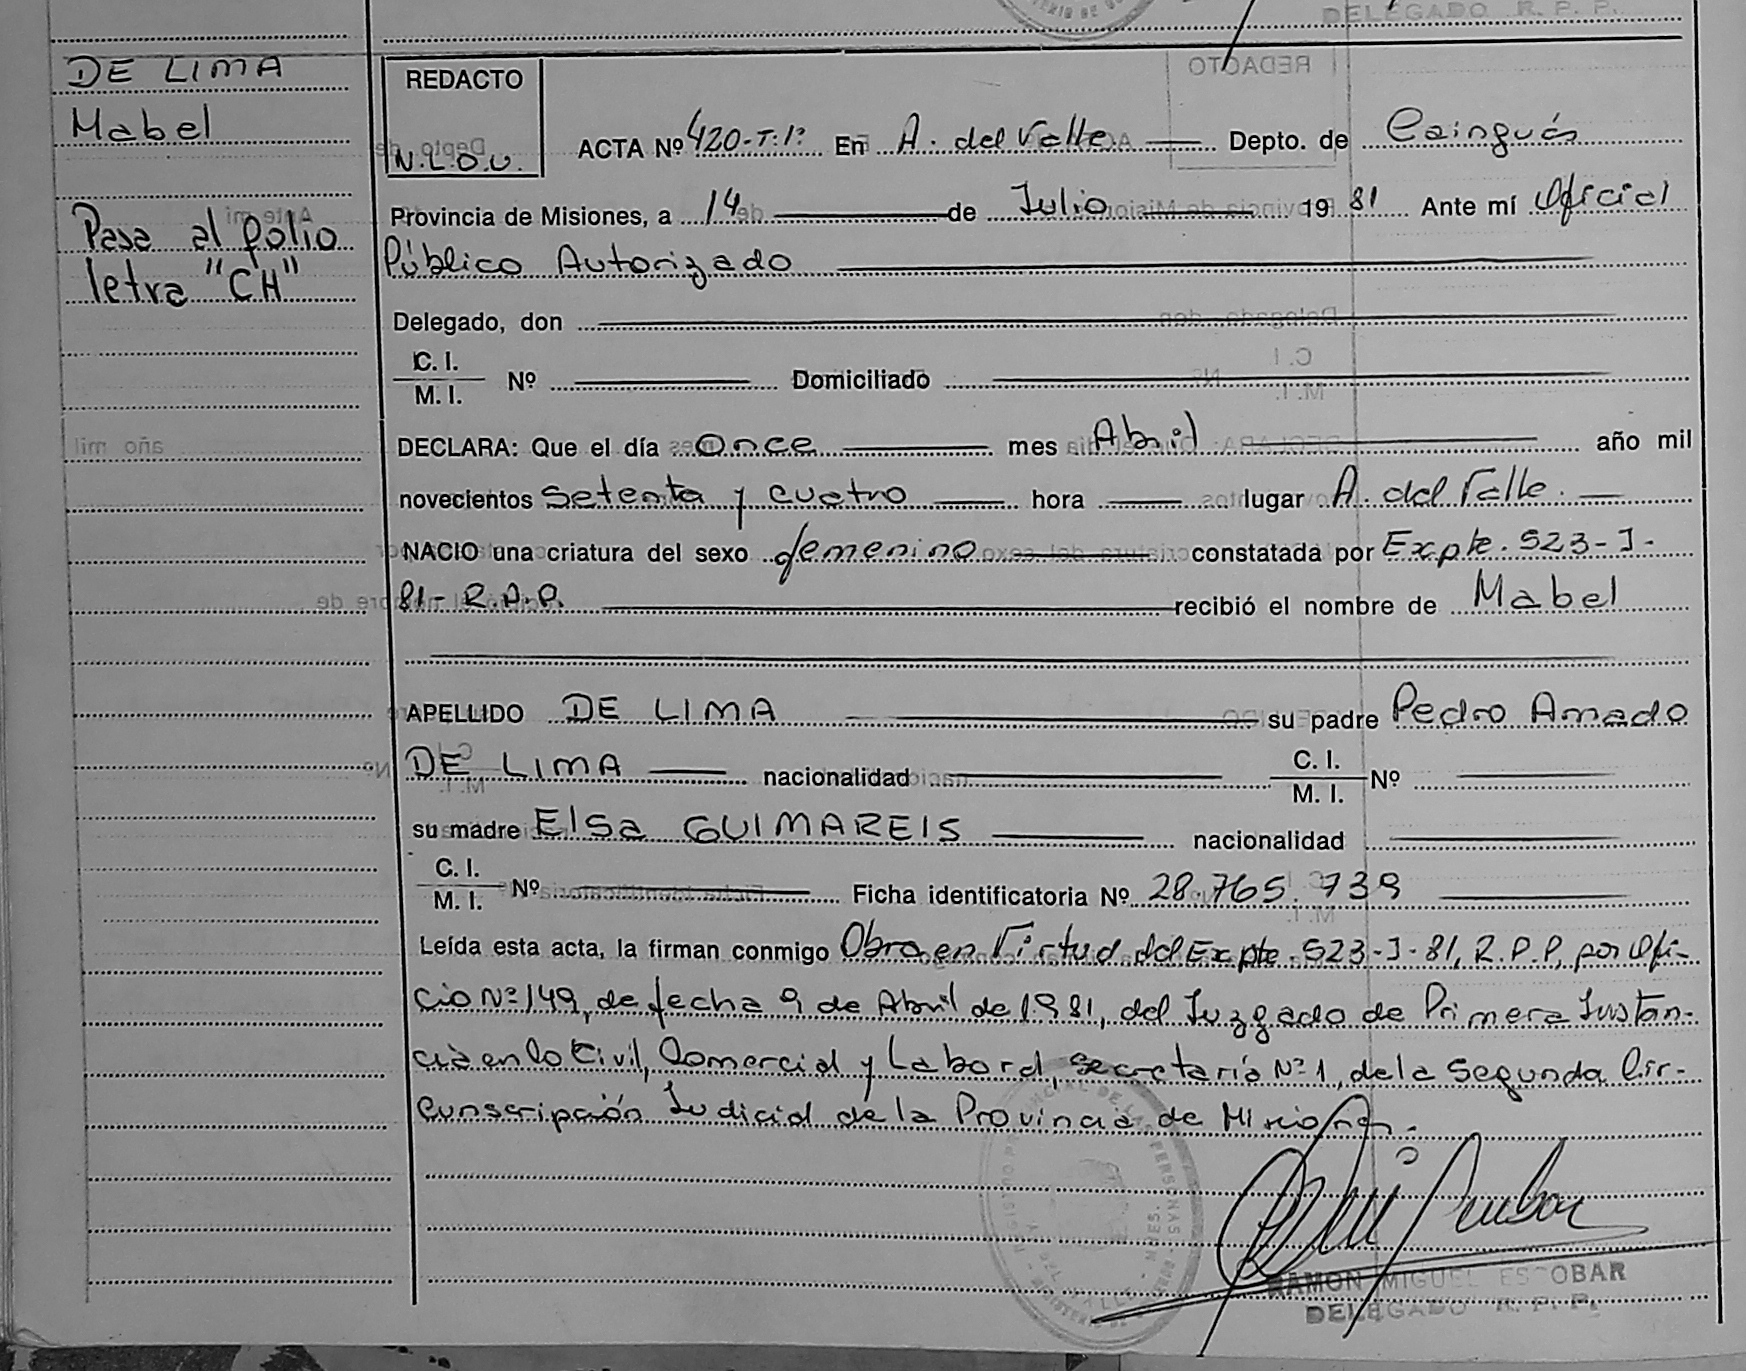 DELEGADO R. P. P.
DE LIMA
Mabel
Pasa al folio
letra "CH"
REDACTO
N.L.O.U.
ACTA Nº 420-T:1º En A. del Valle Depto. de Cainguás
Provincia de Misiones, a 14 de Julio 19 81 Ante mí Oficial
Público Autorizado
Delegado, don
C. I.
M. I. Nº Domiciliado
DECLARA: Que el día once mes Abril año mil
novecientos setenta y cuatro hora lugar A. del Valle.
NACIO una criatura del sexo femenino constatada por Expte. 523-J-
81- R.P.P. recibió el nombre de Mabel
APELLIDO DE LIMA su padre Pedro Amado
DE LIMA nacionalidad C. I.
M. I. Nº
su madre Elsa GUIMAREIS nacionalidad
C. I.
M. I. Nº Ficha identificatoria Nº 28.765.739
Leída esta acta, la firman conmigo Obra en Virtud del Expte. 523-J-81, R.P.P, por Ofi-
cio Nº 149, de fecha 9 de Abril de 1981, del Juzgado de Primera Instan-
cia en lo Civil, Comercial y Laboral, Secretaría Nº 1, de la Segunda Cir-
cunscripción Judicial de la Provincia de Misiones.
RAMON MIGUEL ESCOBAR
DELEGADO R. P. P.